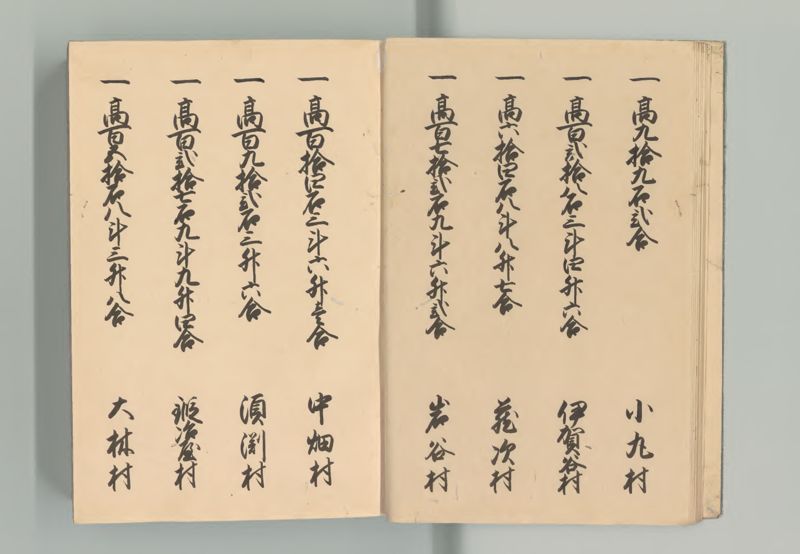 一 高九拾九石弐合 小丸村
一 高百弐拾八石三斗四升六合 伊賀谷村
一 高六拾四石八斗八升七合 蔵次村
一 高百七拾弐石九斗六升弐合 岩谷村
一 高百拾四石三斗六升壱合 中畑村
一 高百九拾弐石三升六合 須渕村
一 高百弐拾七石九斗九升四合 鍛冶屋村
一 高百五拾石八斗三升八合 大林村